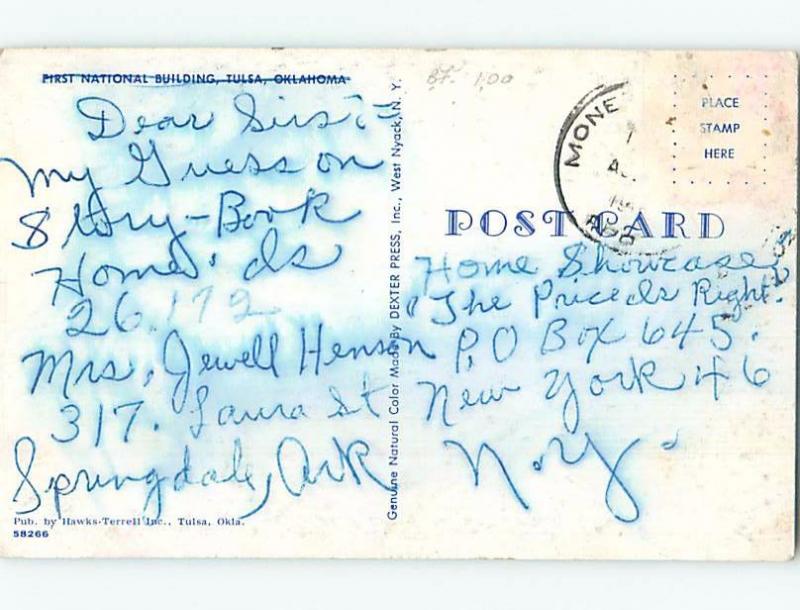 FIRST NATIONAL BUILDING, TULSA, OKLAHOMA
Dear Sirs:-
My Guess on
Story-Book
Home. Is
26,172
Mrs. Jewell Henson
317. Laura St
Springdale, Ark
Pub. by Hawks-Terrell Inc., Tulsa, Okla.
58266
Genuine Natural Color Made By DEXTER PRESS, Inc., West Nyack, N. Y.
BF. 1.00
PLACE
STAMP
HERE
MONE
POST CARD
Home Showcase
"The Price Is Right.
P.O Box 645.
New York 46
N.Y.